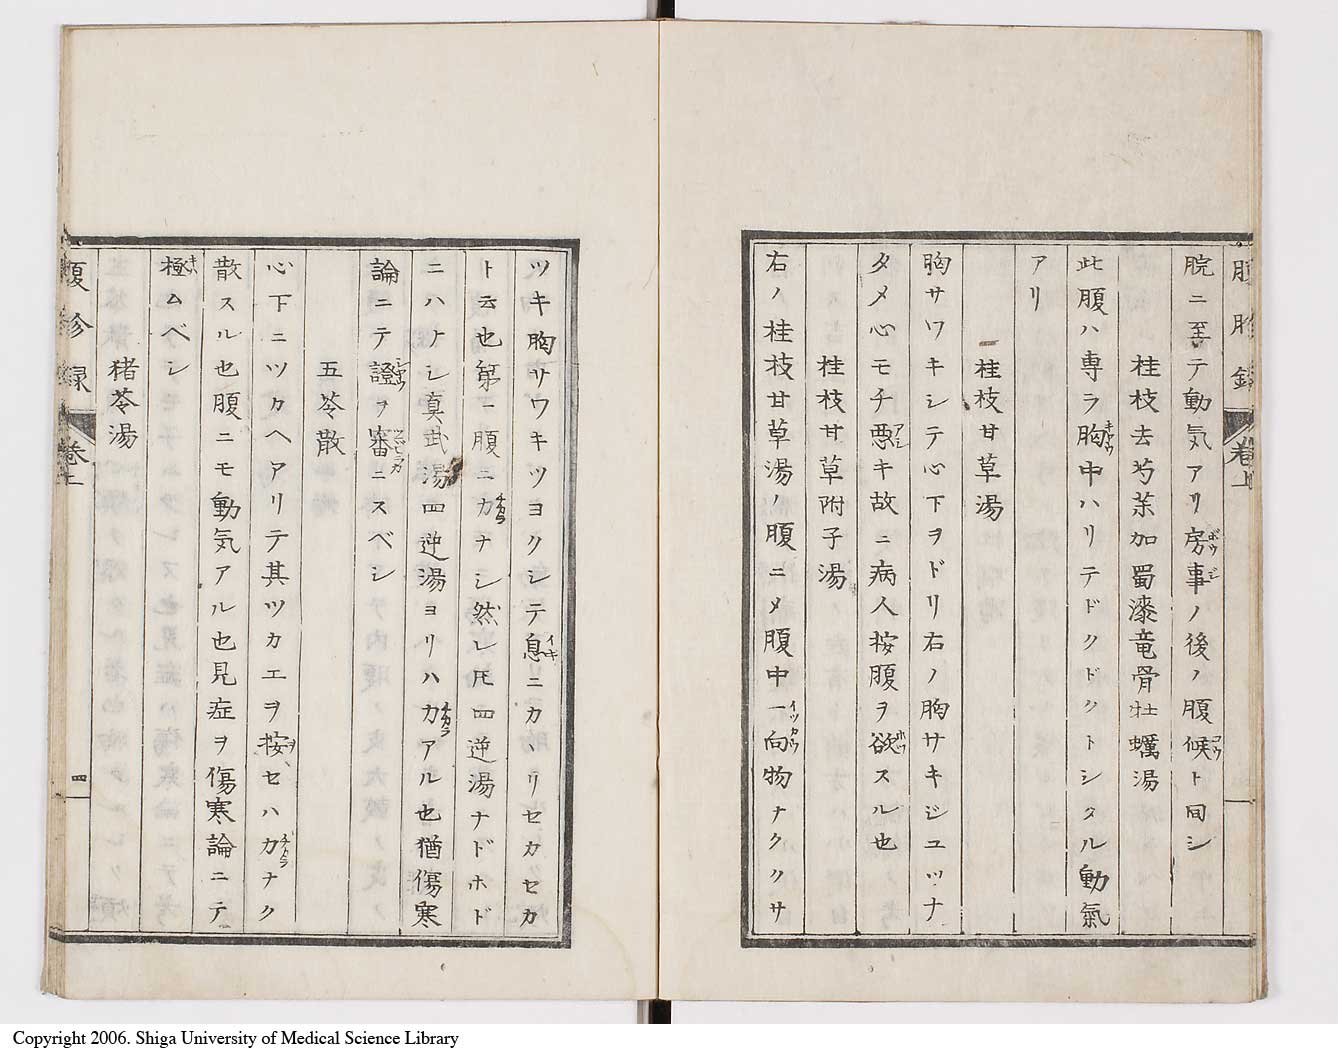 脘ニ至テ動気アリ房事ノ後ノ腹候ト同シ
桂枝去芍茱加蜀漆竜骨牡蠣湯
此腹ハ専ラ胸中ハリテドクドクトシタル動氣
アリ
桂枝甘草湯
胸サワキシテ心下ヲドリ右ノ胸サキジユツナ
タメ心モチ悪キ故ニ病人按腹ヲ欲スル也
桂枝甘草附子湯
右ノ桂枝甘草湯ノ腹ニメ腹中一向物ナククサ
ツキ胸サワキツヨクシテ息ニカヽリセカクセカ
ト云也第一腹ニカナシ然レ𪜈四逆湯ナドホド
ニハナシ真武湯四逆湯ヨリハ力アル也猶傷寒
論ニテ證ヲ審ニスベシ
五苓散
心下ニツカヘアリテ其ツカエヲ按セハ力ナク
散スル也腹ニモ動気アル也見症ヲ傷寒論ニテ
極ムベシ
猪苓湯
腹診録 卷上
四
Copyright 2006. Shiga University of Medical Science Library